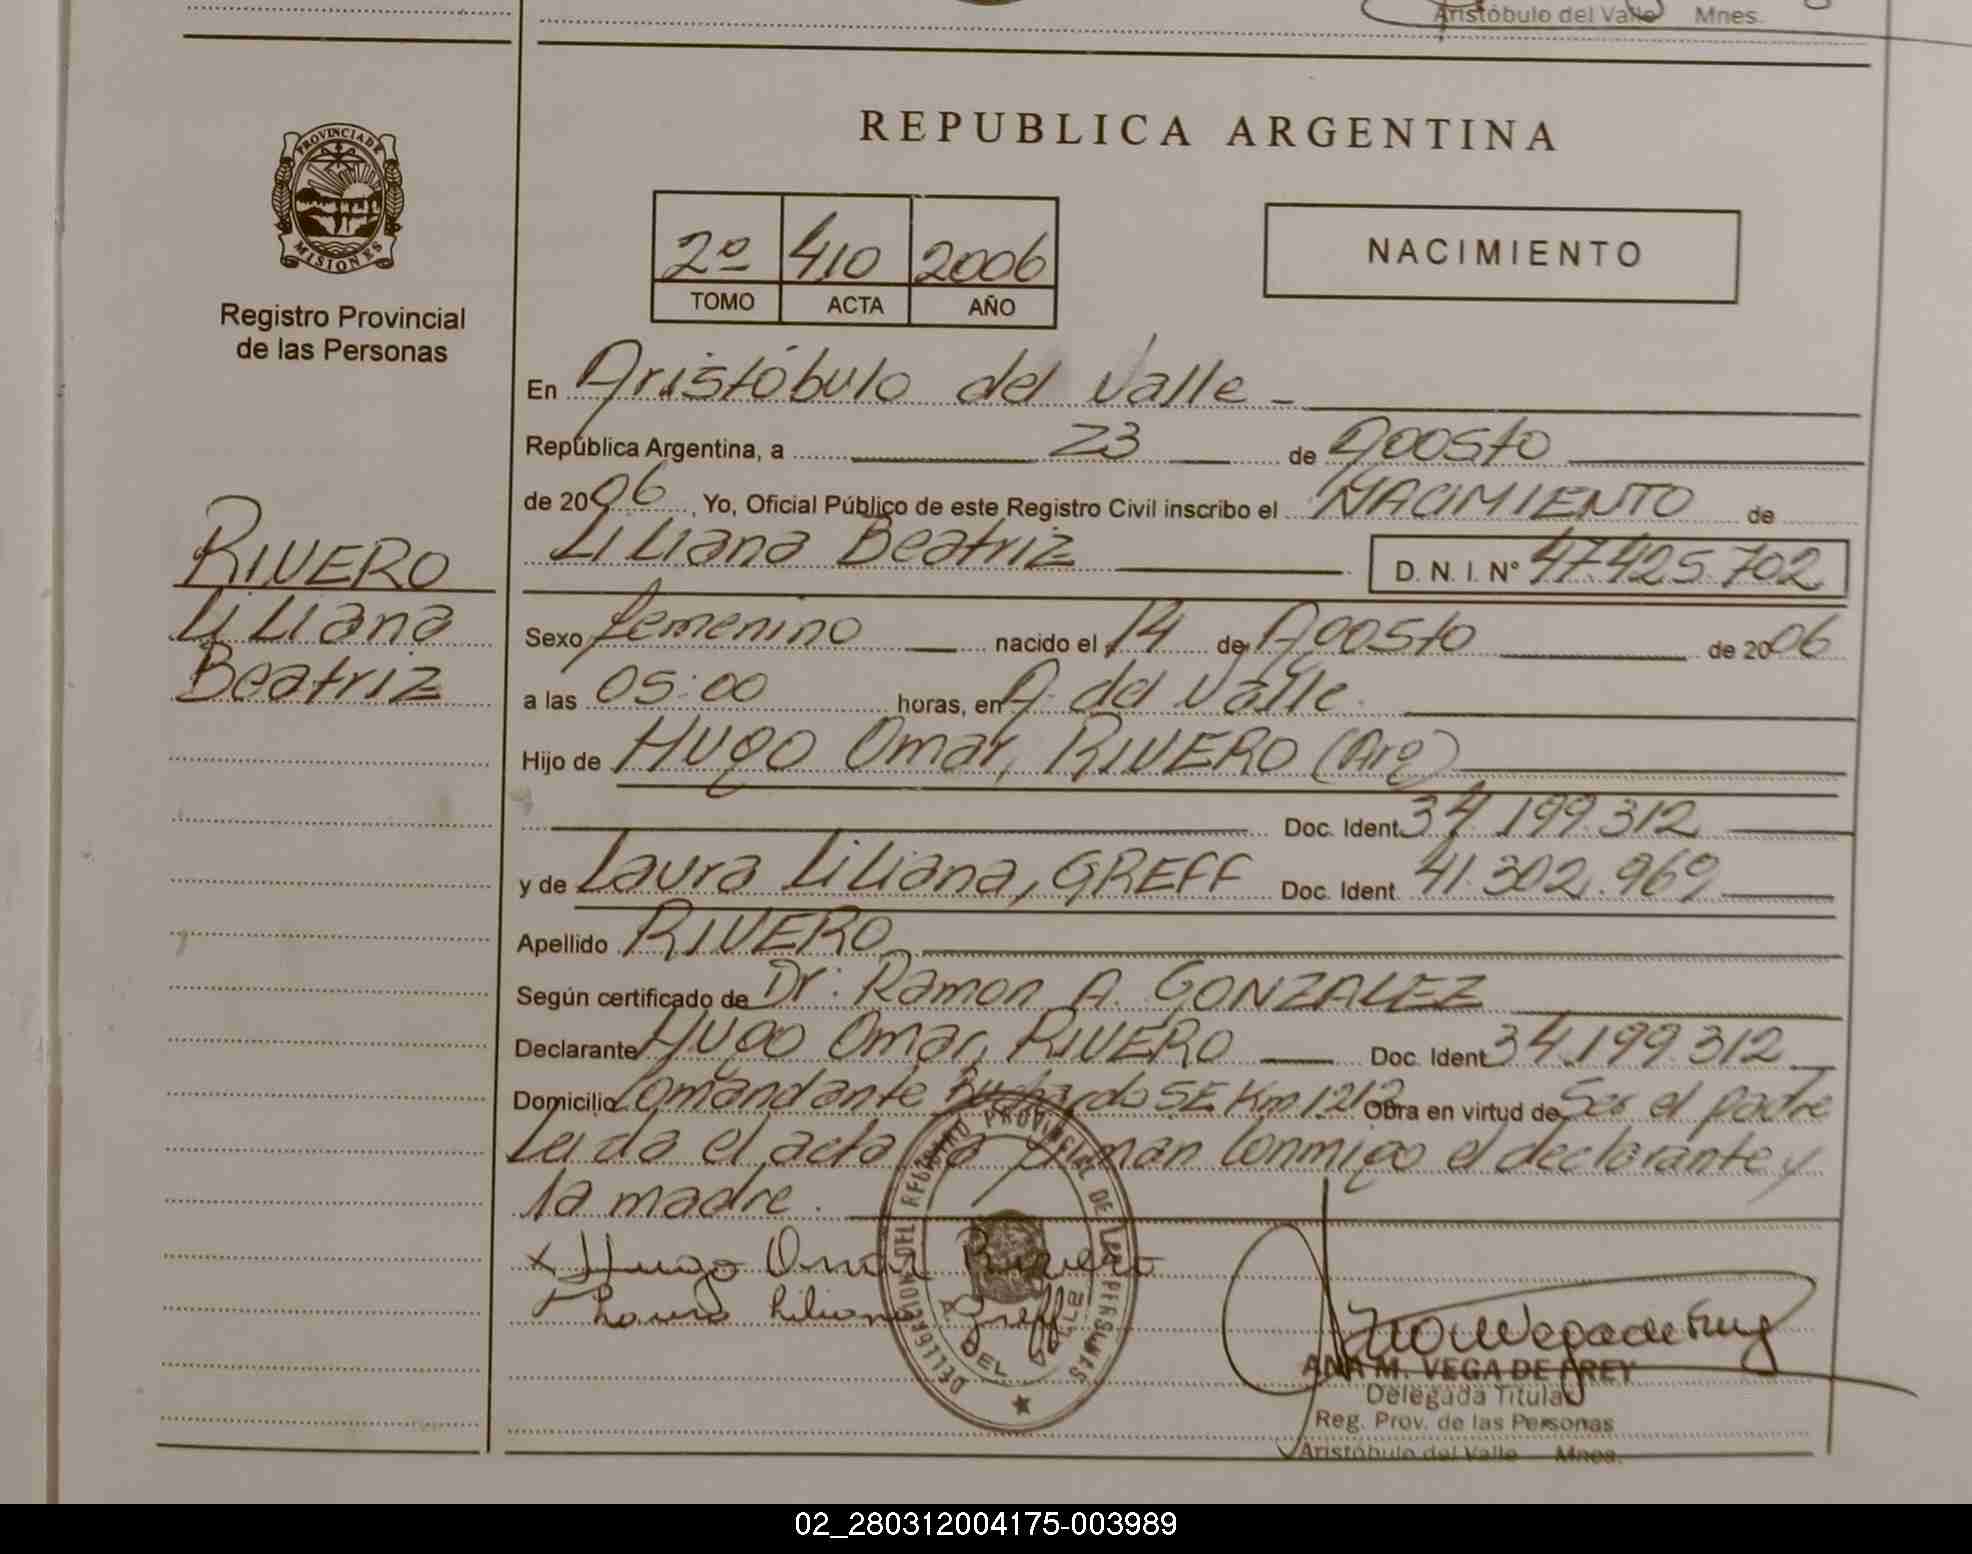 Aristóbulo del Valle Mnes.
PROVINCIA DE
MISIONES
Registro Provincial
de las Personas
REPUBLICA ARGENTINA
2º 410 2006
TOMO ACTA AÑO
NACIMIENTO
En Aristóbulo del Valle -
República Argentina, a 23 de Agosto
de 2006, Yo, Oficial Público de este Registro Civil inscribo el NACIMIENTO de
Liliana Beatriz D. N. I. Nº 47.425.702
RIVERO
Liliana
Beatriz
Sexo femenino nacido el 14 de Agosto de 2006
a las 05:00 horas, en A. del Valle.
Hijo de Hugo Omar, RIVERO (Arg)
Doc. Ident. 34.199.312
y de Laura Liliana, GREFF Doc. Ident. 41.302.969
Apellido RIVERO
Según certificado de Dr. Ramon A. GONZALEZ
Declarante Hugo Omar, RIVERO Doc. Ident. 34.199.312
Domicilio Comandante SE Km 1212 Obra en virtud de Ser el padre
Leida el acta la firman Conmigo el declarante y
la madre.
x Hugo Omar Rivero
Laura Liliana Greff
DELEGACION DEL REGISTRO PROVINCIAL DE LAS PERSONAS
A. DEL VALLE
ANA M. VEGA DE FREY
Delegada Titular
Reg. Prov. de las Personas
Aristóbulo del Valle Mnes.
02_280312004175-003989